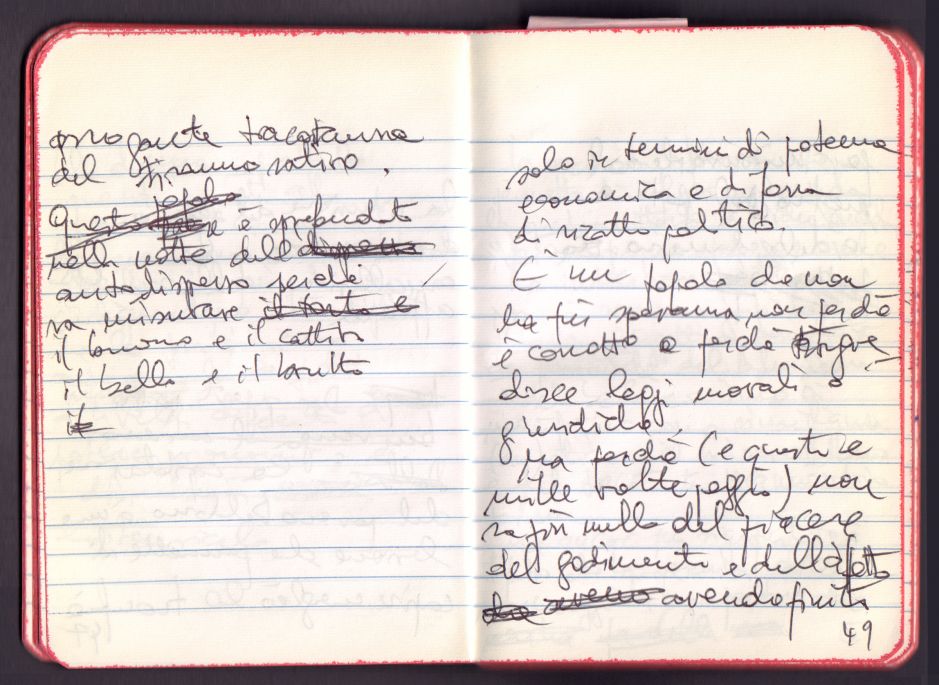 arrogante tracotanza
del tiranno satiro.
popolo
Questo è sprofondato
nella notte dell
autodisprezzo perché
sa misurare il torto e
il buono e il cattivo
il bello e il brutto
il
solo in termini di potenza
economica e di forza
di ricatto politico.
È un popolo che non
ha più speranza non perché
è corrotto o perché
disce leggi morali o
giuridiche
ma perché (e questo è
mille volte peggio) non
sa più nulla del piacere
del godimento e dell
avendo finito
49